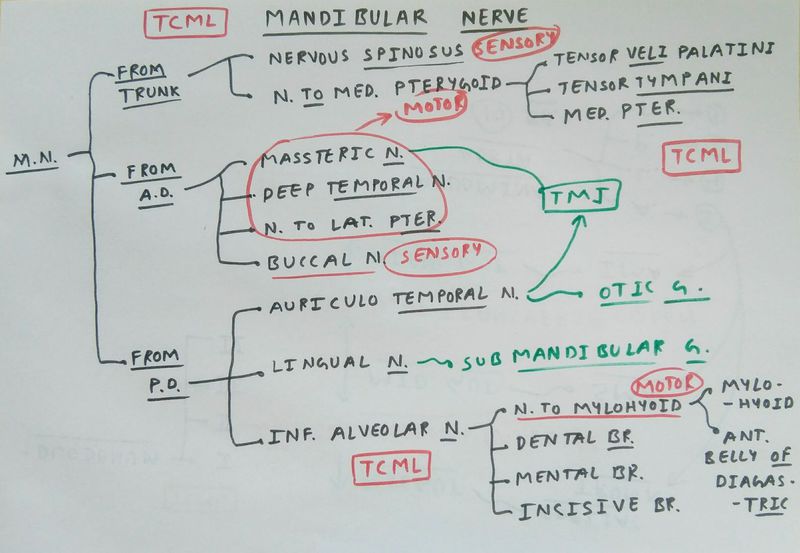 TCML MANDIBULAR NERVE
NERVOUS SPINOSUS SENSORY
FROM TRUNK
N. TO MED. PTERYGOID
TENSOR VELI PALATINI
TENSOR TYMPANI
MED. PTER.
MOTOR
M.N.
FROM A.D.
MASSTERIC N.
DEEP TEMPORAL N.
N. TO LAT. PTER.
BUCCAL N. SENSORY
TMJ
TCML
FROM P.D.
AURICULO TEMPORAL N.
OTIC G.
LINGUAL N.
SUB MANDIBULAR G.
INF. ALVEOLAR N.
TCML
MOTOR
N. TO MYLOHYOID
DENTAL BR.
MENTAL BR.
INCISIVE BR.
MYLO-
-HYOID
ANT.
BELLY OF
DIAGAS-
-TRIC